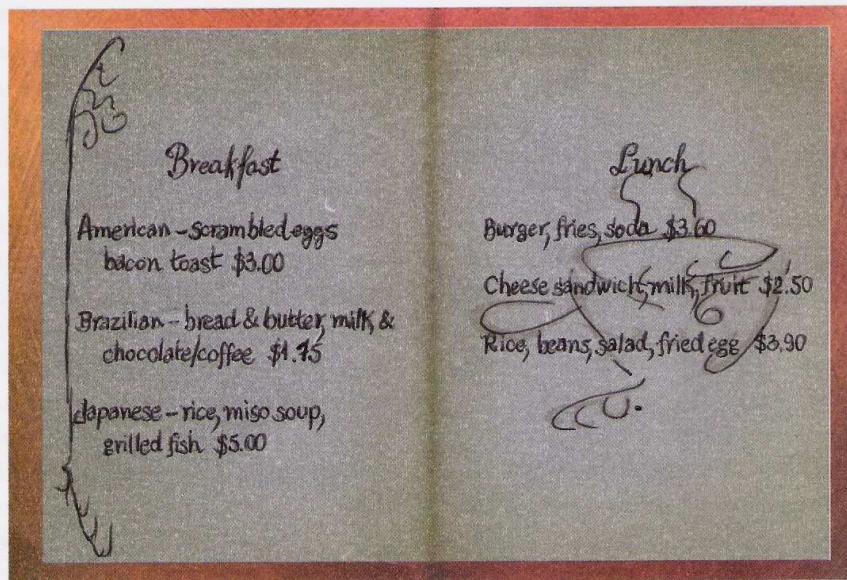 Breakfast
American – scrambled eggs
bacon toast $3.00
Brazilian – bread & butter, milk, &
chocolate/coffee $1.75
Japanese – rice, miso soup,
grilled fish $5.00
Lunch
Burger, fries, soda $3.60
Cheese sandwich, milk, fruit $2.50
Rice, beans, salad, fried egg $3.90